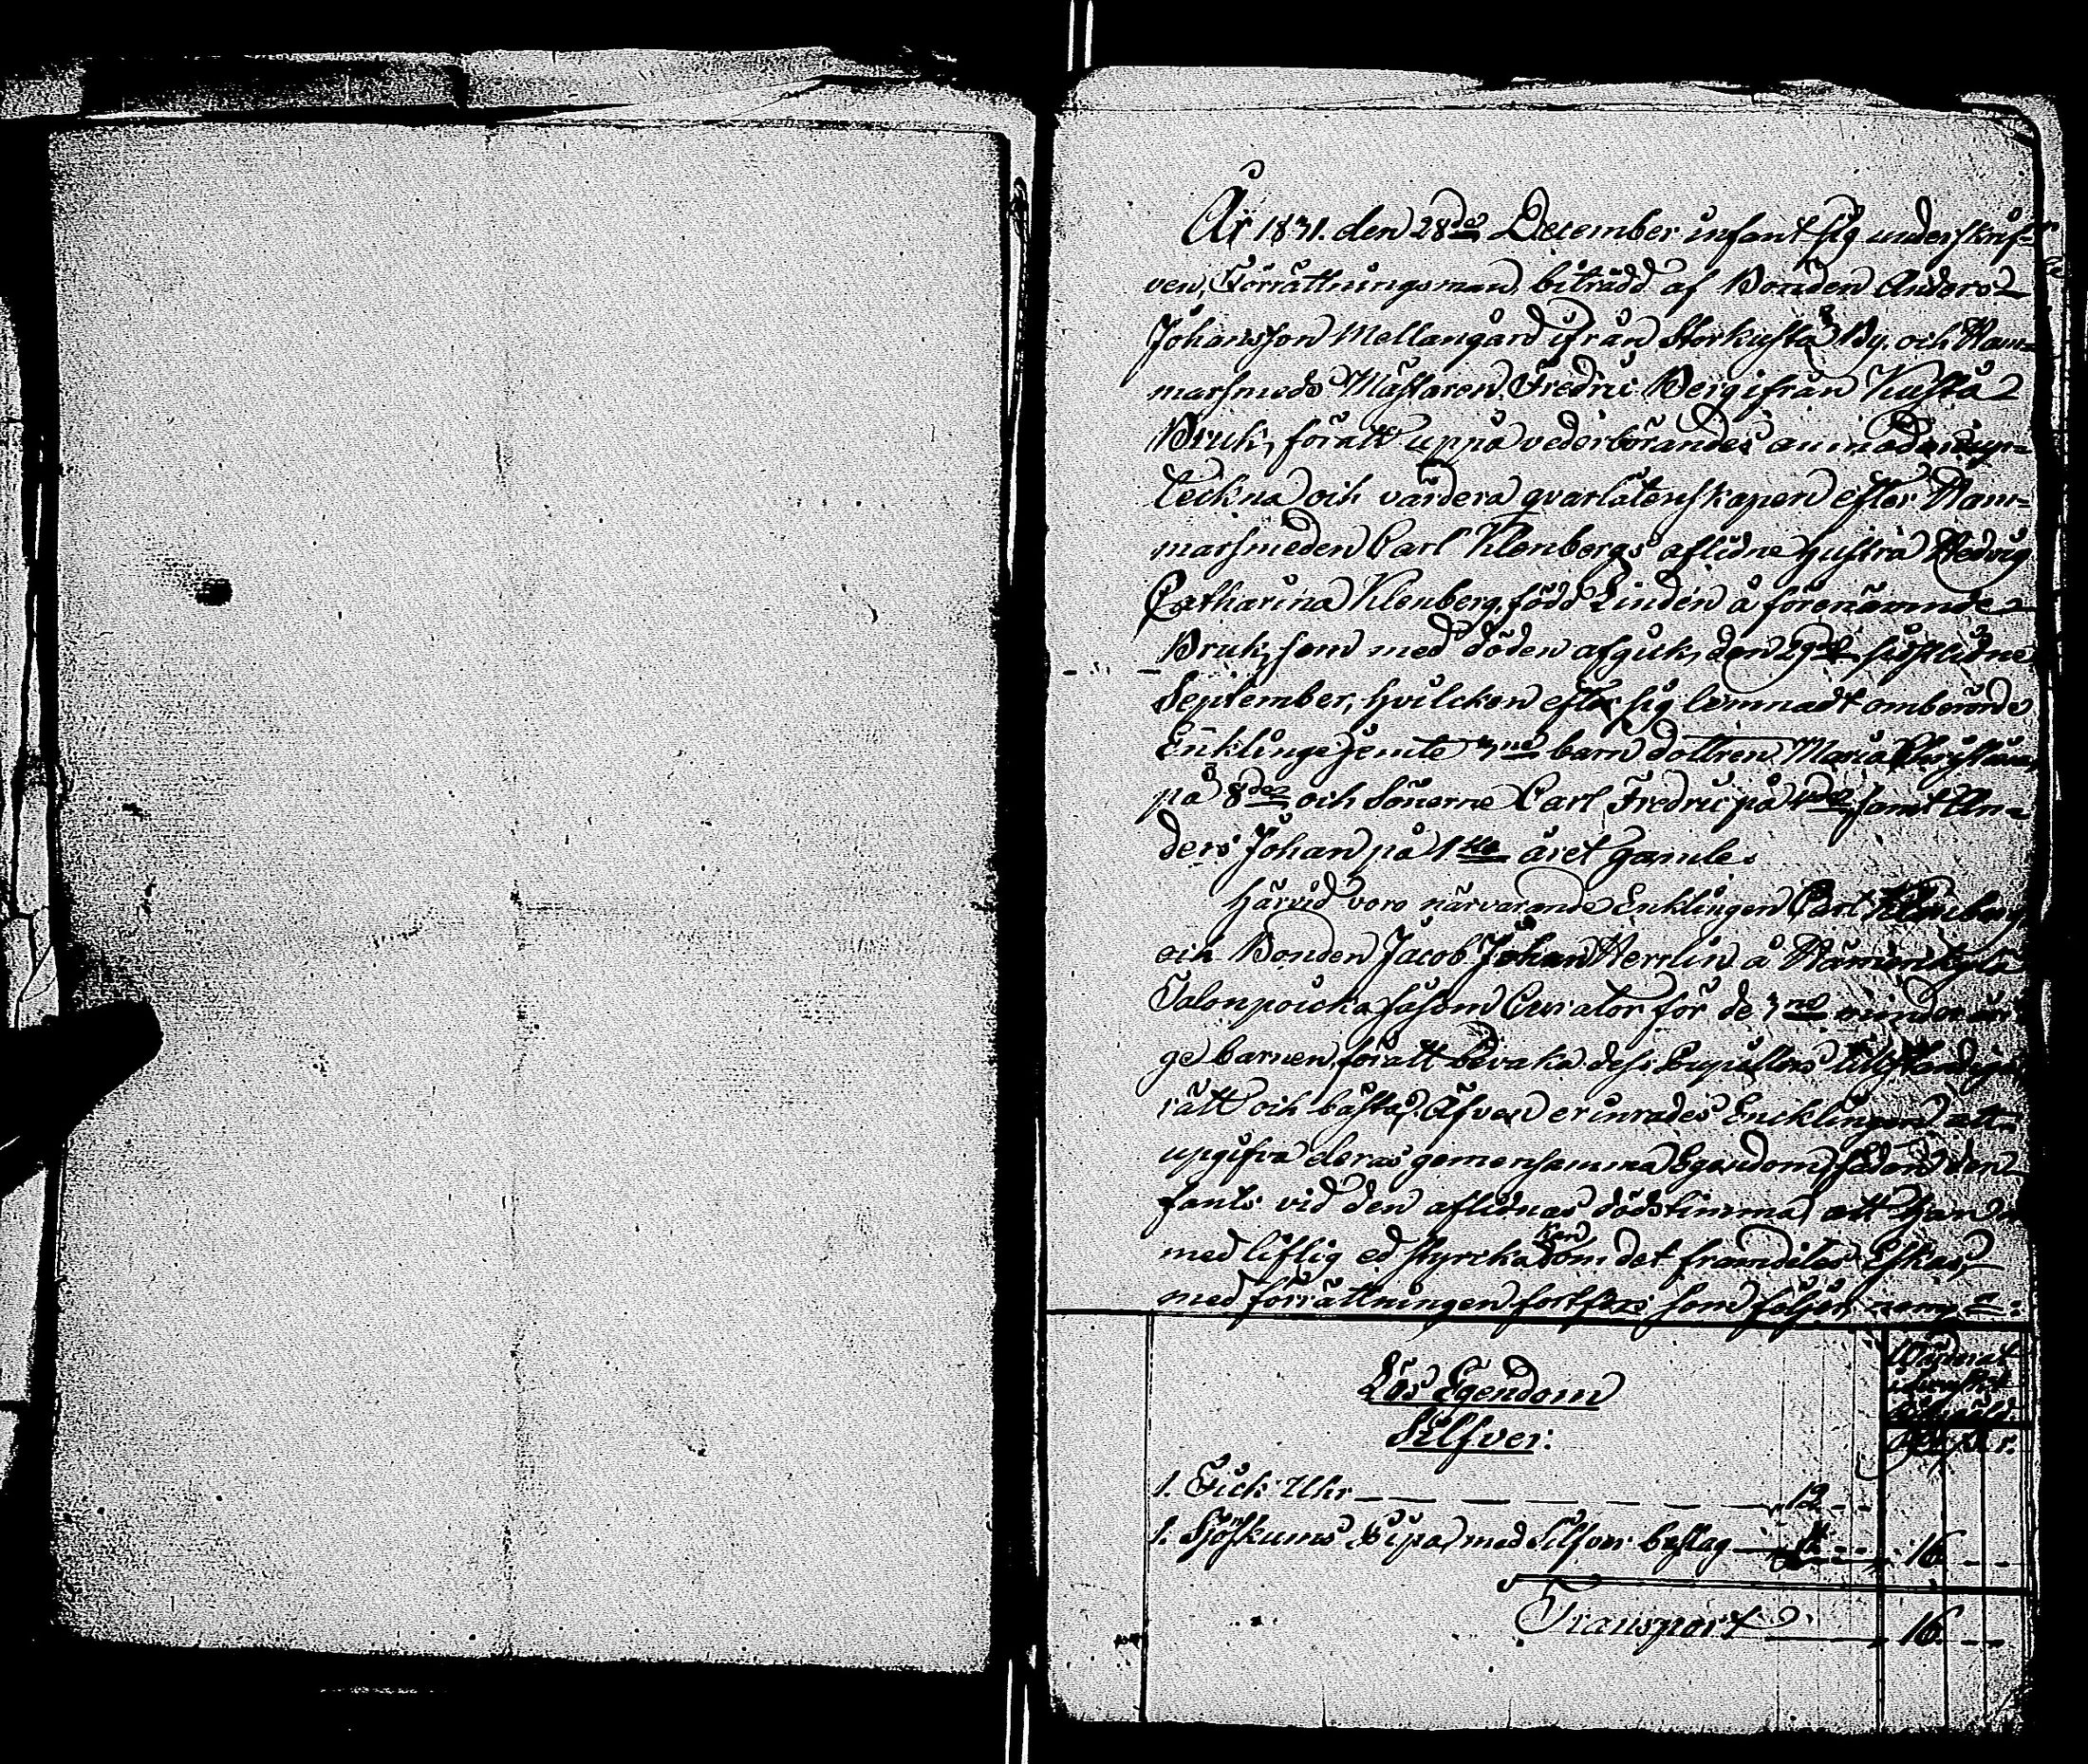 År 1831. den 28de December infant sig underskrif-
ven, Förrättningsman, biträdd af Bonden Anders
Johansson Mellangård ifrån Storkusta By, och Ham-
marsmeds Mästaren Fredric Berg ifrån Kusta
Bruk, för att uppå vederbörandes anmodan up-
teckna och värdera qvarlåtenskapen efter Ham-
marsmeden Carl Klenbergs aflidne hustru Hedvig
Catharina Klenberg, född Lindén å förenämnde
Bruk, som med döden afgick, den 29de sistlidne
September, hvilcken efter sig lemnadt omberörde
Enklinge jemte 3ne barn dottren Maria Christina
på 8de och Sönerne Carl Fredric på 4de samt An-
ders Johan på 1sta året gamle.
Härvid voro närvarande Enklingen Carl Klenberg
och Bonden Jacob Johan Herrlin å
såsom Curator för de 3ne minderåri-
ge barnen, för att bevaka dess Pupillers tillständiga
rätt och bästa; Äfven erinrades Encklingen att
upgifva deras gemensamma Egendom, sådan den
fants vid den aflidnas dödstimma, att han
med liflig ed styrcka kan om det framdeles Eskas,
med förrättningen fortfors som följer nemg:
Lös Egendom
Silfver:
1. Fick Uhr 12 - -
1. Sjöskums Pipa med Silfver beslag 4 - - 16 - -
Transport 16 - -